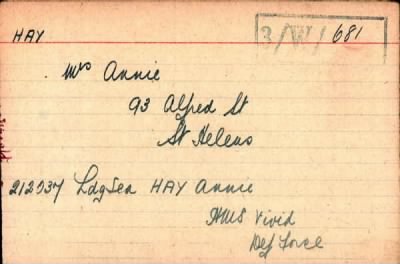 HAY 3/W/681
Mrs Annie
93 Alfred St
St Helens
212037 LdgSea HAY Annie
HMS Vivid
Def Force